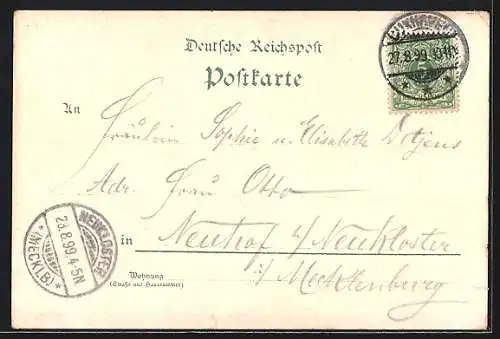 Deutsche Reichspost
Postkarte
27.8.99.
An
Fräulein Sophie u. Elisabeth Detjens
Adr. Frau Otto
in Neuhof b/ Neukloster
i/ Mecklenburg
Wohnung
(Straße und Hausnummer)
NEUKLOSTER
28.8.99.4-5N
*(MECKLB)*